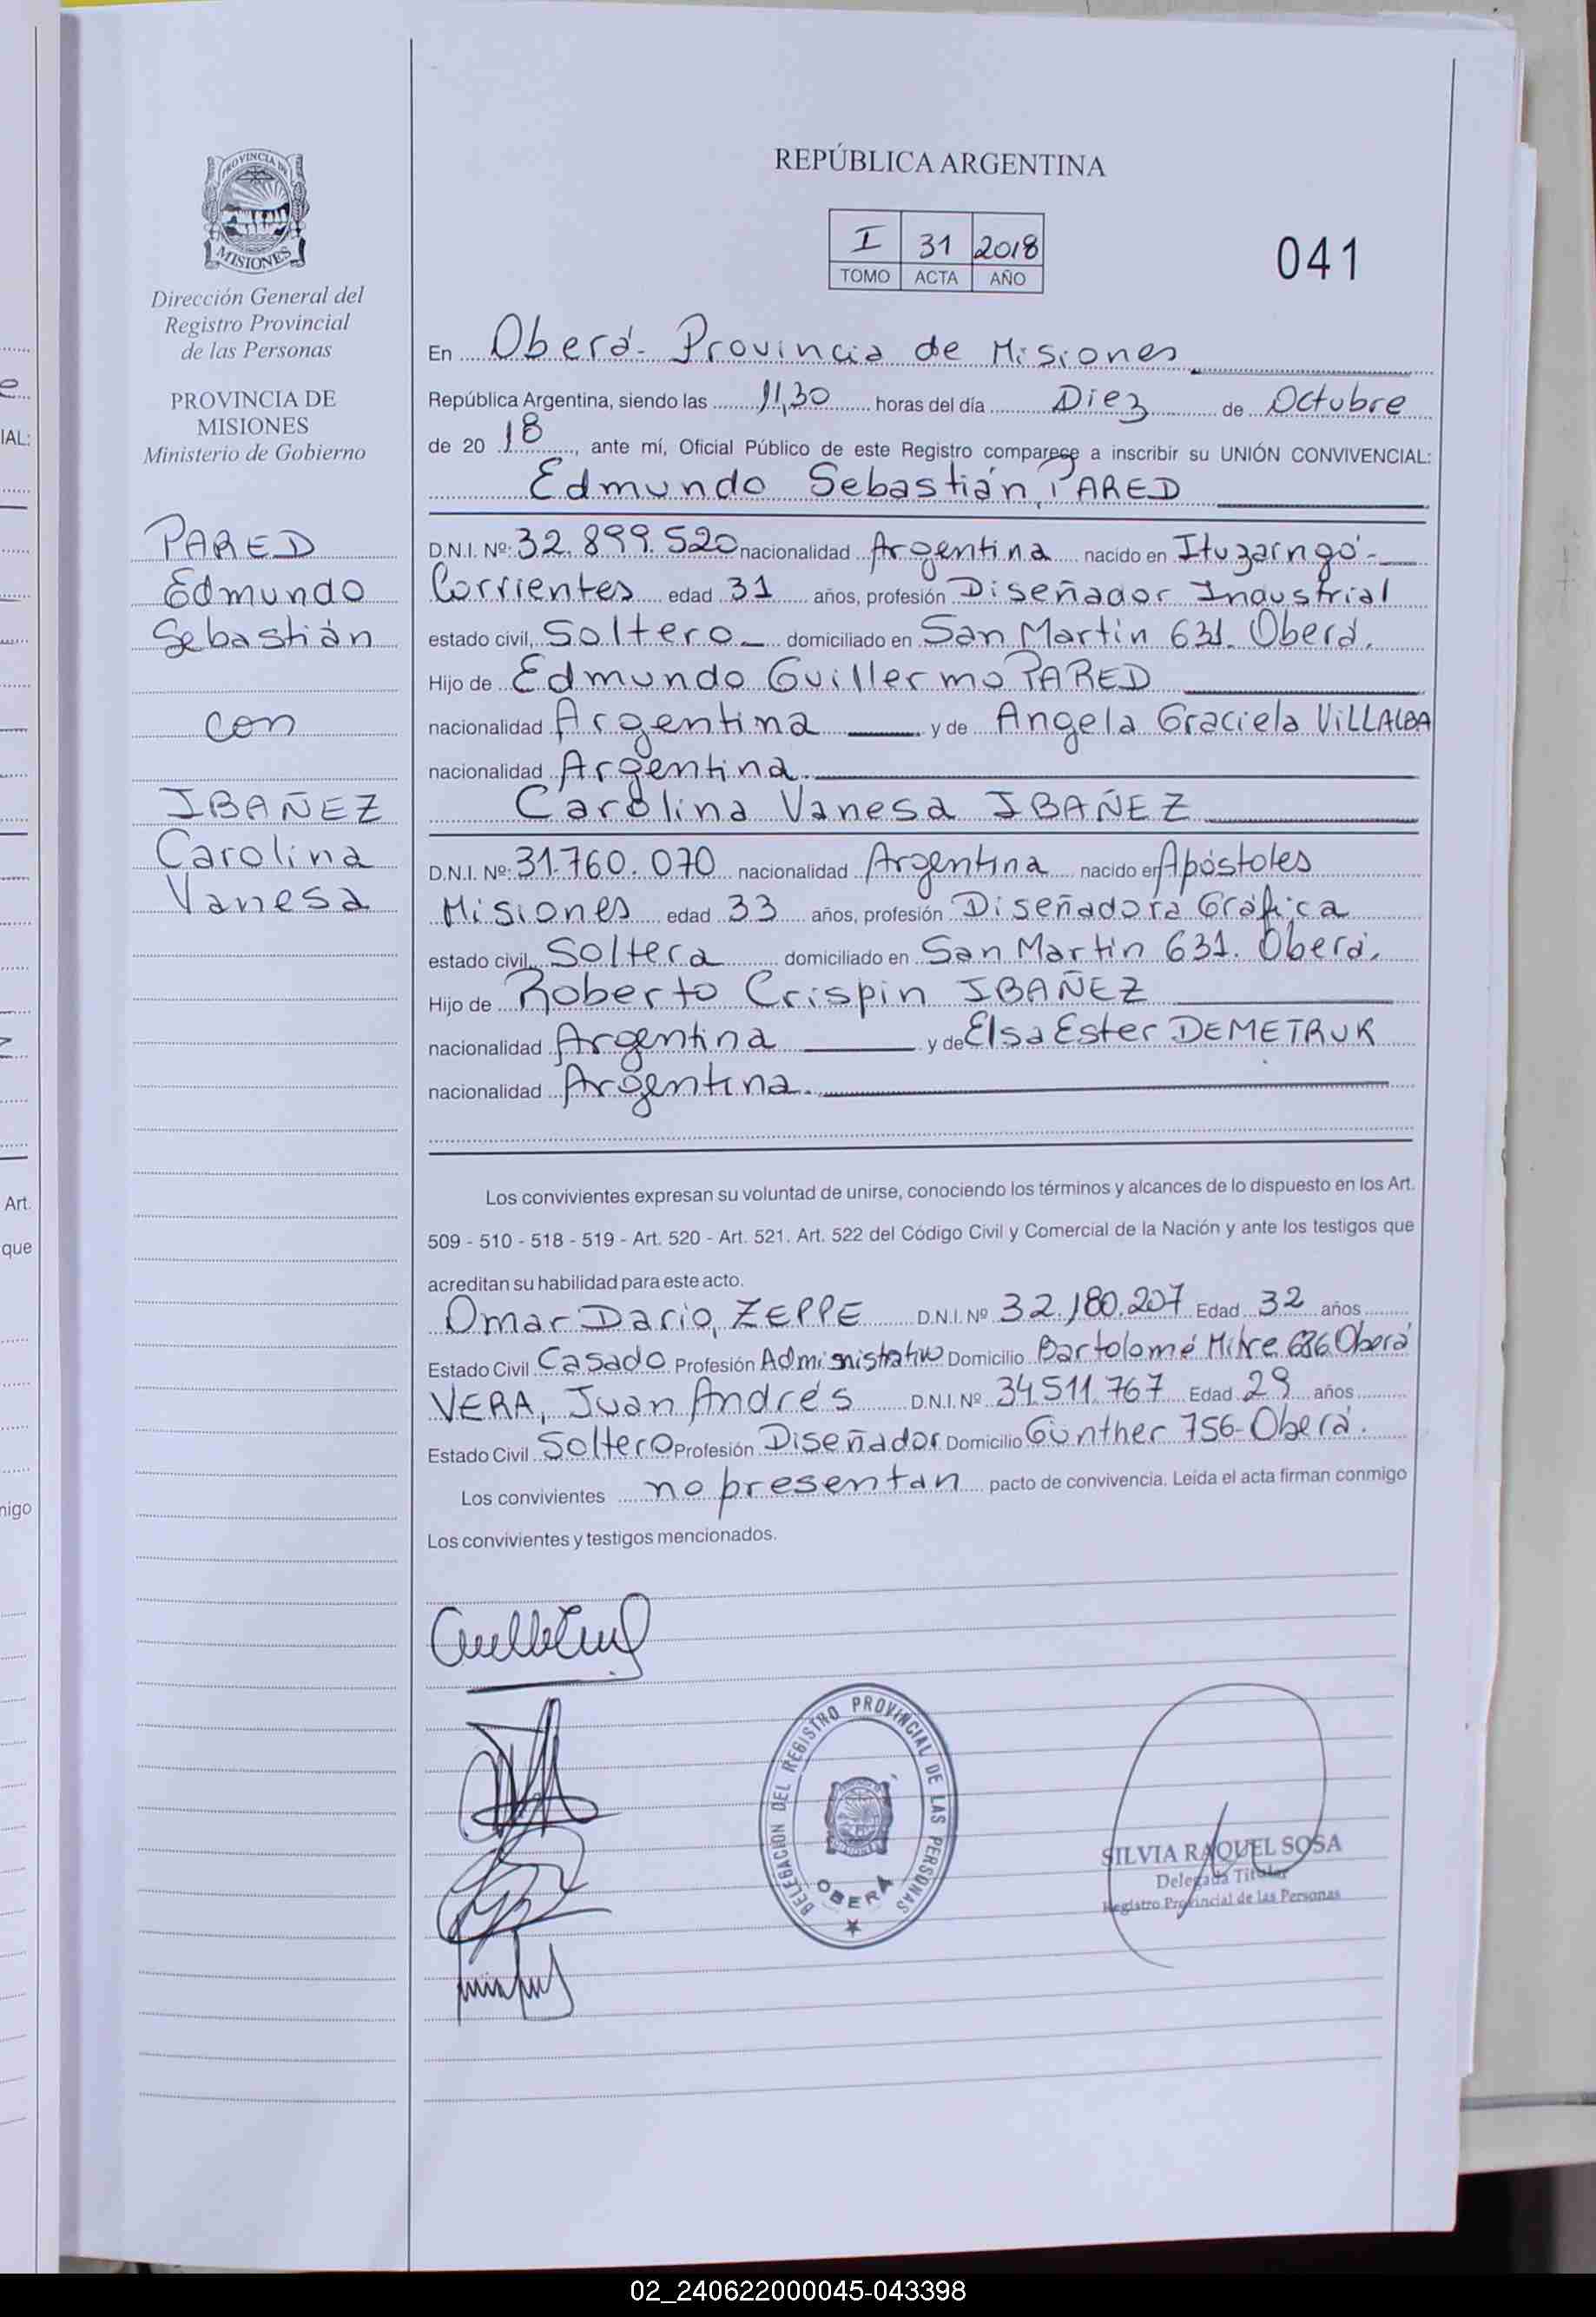 REPÚBLICA ARGENTINA
I 31 2018
TOMO ACTA AÑO
041
PROVINCIA DE
MISIONES
Dirección General del
Registro Provincial
de las Personas
PROVINCIA DE
MISIONES
Ministerio de Gobierno
PARED
Edmundo
Sebastián
con
IBAÑEZ
Carolina
Vanesa
En Oberá - Provincia de Misiones
República Argentina, siendo las 11,30 horas del día Diez de Octubre
de 20 18, ante mí, Oficial Público de este Registro comparece a inscribir su UNIÓN CONVIVENCIAL:
Edmundo Sebastián, PARED
D.N.I. Nº: 32.899.520 nacionalidad Argentina nacido en Ituzaingó -
Corrientes edad 31 años, profesión Diseñador Industrial
estado civil, Soltero domiciliado en San Martín 631. Oberá.
Hijo de Edmundo Guillermo PARED
nacionalidad Argentina y de Angela Graciela VILLALBA
nacionalidad Argentina.
Carolina Vanesa IBAÑEZ
D.N.I. Nº: 31.760.070 nacionalidad Argentina nacido en Apóstoles
Misiones edad 33 años, profesión Diseñadora Gráfica
estado civil, Soltera domiciliado en San Martín 631. Oberá.
Hijo de Roberto Crispin IBAÑEZ
nacionalidad Argentina y de Elsa Ester DEMETRUK
nacionalidad Argentina.
Los convivientes expresan su voluntad de unirse, conociendo los términos y alcances de lo dispuesto en los Art.
509 - 510 - 518 - 519 - Art. 520 - Art. 521. Art. 522 del Código Civil y Comercial de la Nación y ante los testigos que
acreditan su habilidad para este acto.
Omar Dario, ZEPPE D.N.I. Nº 32.180.207 Edad 32 años
Estado Civil Casado Profesión Administrativo Domicilio Bartolomé Mitre 686 Oberá
VERA, Juan Andrés D.N.I. Nº 34.511.767 Edad 29 años
Estado Civil Soltero Profesión Diseñador Domicilio Günther 756 - Oberá.
Los convivientes no presentan pacto de convivencia. Leída el acta firman conmigo
Los convivientes y testigos mencionados.
DELEGACION DEL REGISTRO PROVINCIAL DE LAS PERSONAS
OBERÁ
SILVIA RAQUEL SOSA
Delegada Titular
Registro Provincial de las Personas
e
IAL:
Art.
que
nigo
02_240622000045-043398